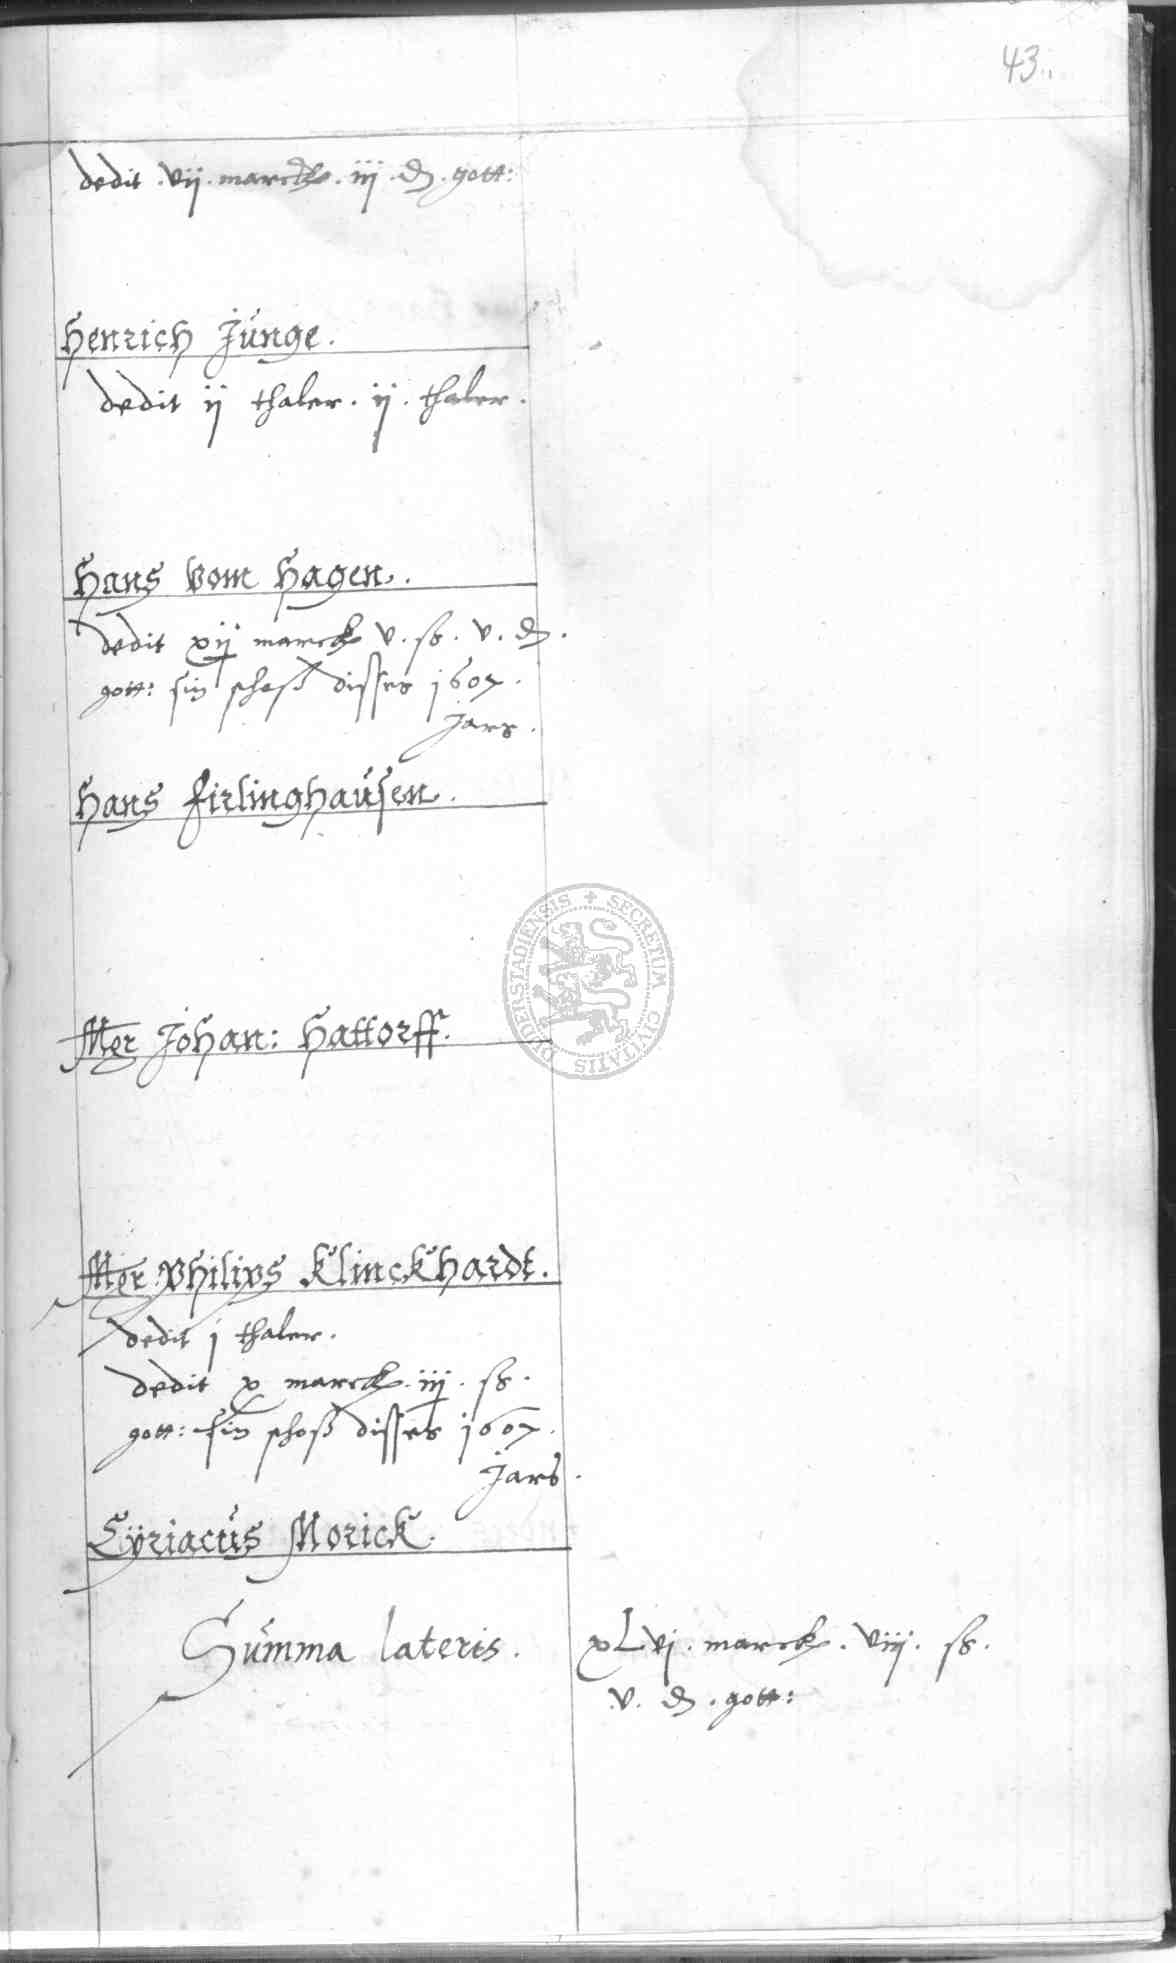 43
dedit . vij . marck . iij . d . gott:
Henrich Junge .
dedit ij thaler . ij . thaler .
Hans vom Hagen .
dedit xij marck v . ß . v . d .
gott: sin schoß disses 1607 .
Jars .
Hans Firlinghausen .
Mgr Johan: Hattorff .
Mgr Philips Klinckhardt .
dedit j thaler .
dedit x marck . iij . ß .
gott: sin schoß disses 1607 .
Jars .
Cÿriacus Morick .
Summa lateris . xLvj . marck . viij . ß .
v . d . gott:
SECRETUM CIVITATIS DUDERSTADIENSIS